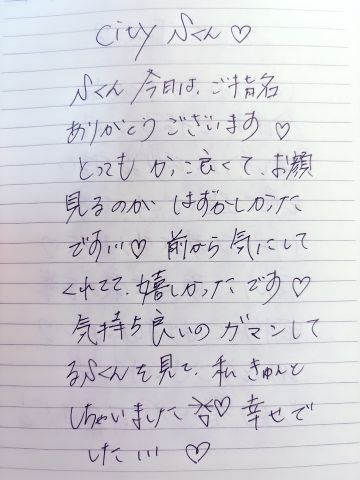 city Sくん♡
Sくん 今日は、ご指名
ありがとうございます♡
とっても かっこ良くて、お顔
見るのが はずかしかった
です!!!♡ 前から気にして
くれてて、嬉しかったです♡
気持ち良いの ガマンして
るSくんを見て、私 きゅんと
しちゃいました♡ 幸せで
した!!! ♡